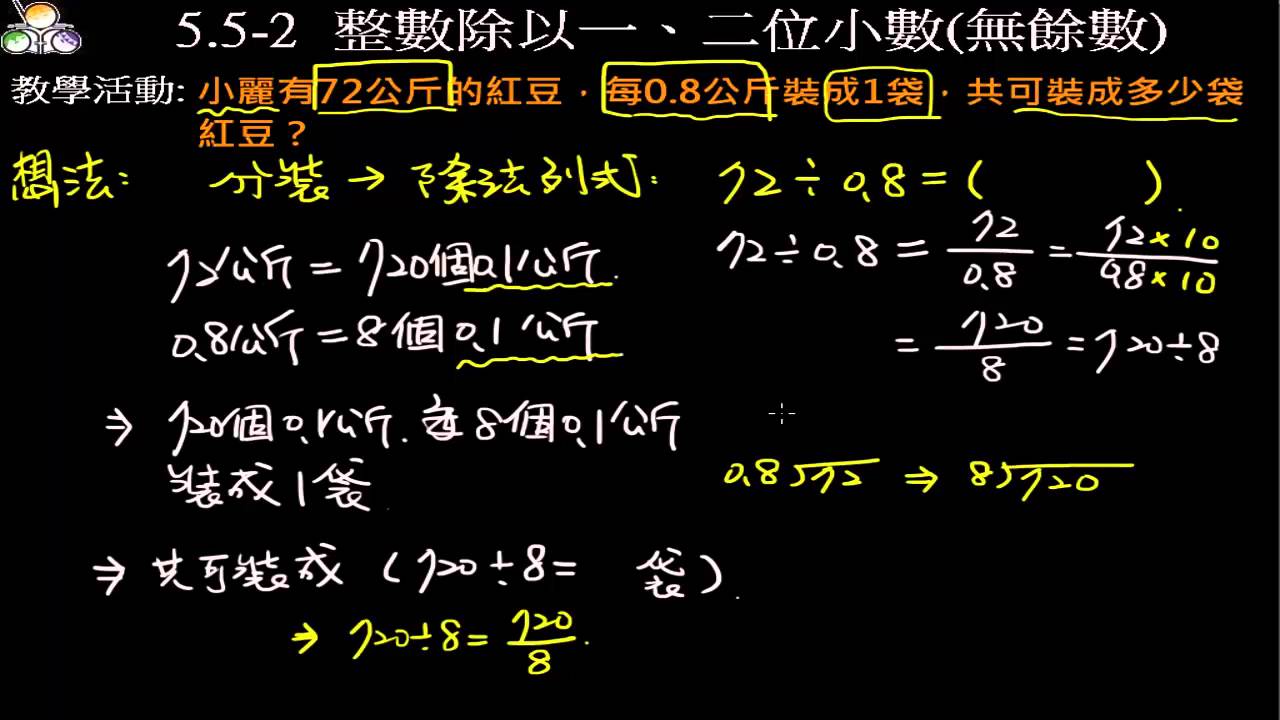 5.5-2 整數除以一、二位小數(無餘數)
教學活動: 小麗有72公斤的紅豆，每0.8公斤裝成1袋，共可裝成多少袋
紅豆？
想法: 分裝→除法列式: 72÷0.8=( ).
72公斤=720個0.1公斤.
0.8公斤=8個0.1公斤
⇒ 720個0.1公斤.每8個0.1公斤
裝成1袋.
⇒ 共可裝成 (720÷8= 袋).
⇒ 720÷8=720/8.
72÷0.8=72/0.8=72×10/0.8×10
=720/8=720÷8
0.8)72 ⇒ 8)720